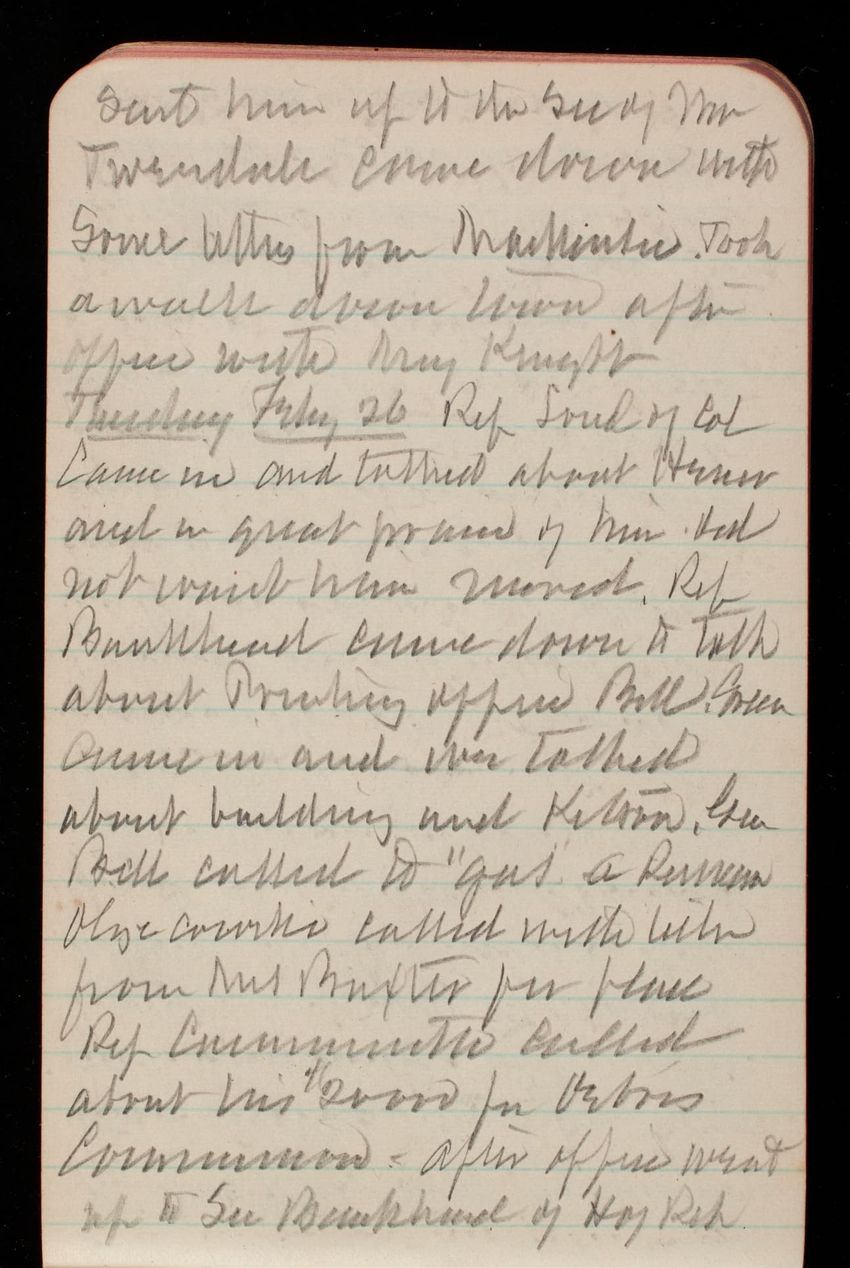 Sent him up to the Secy War
Tweedale came down with
Some letters from MacKenzie. Took
a walk down town after
office with Maj Knight
Tuesday Feby 26 Rep of Col
Came in and talked about
and in great praise of him did
not want him moved. Rep
Bankhead came down to talk
about Printing office Bill. Green
Came in and we talked
about building and. Gen
Bell called to "gas" a
called with letter
from Mrs Baxter for place
Rep called
about his $2000 for Debris
Commission - after office went
up to See Bankhead of Ho of Rep